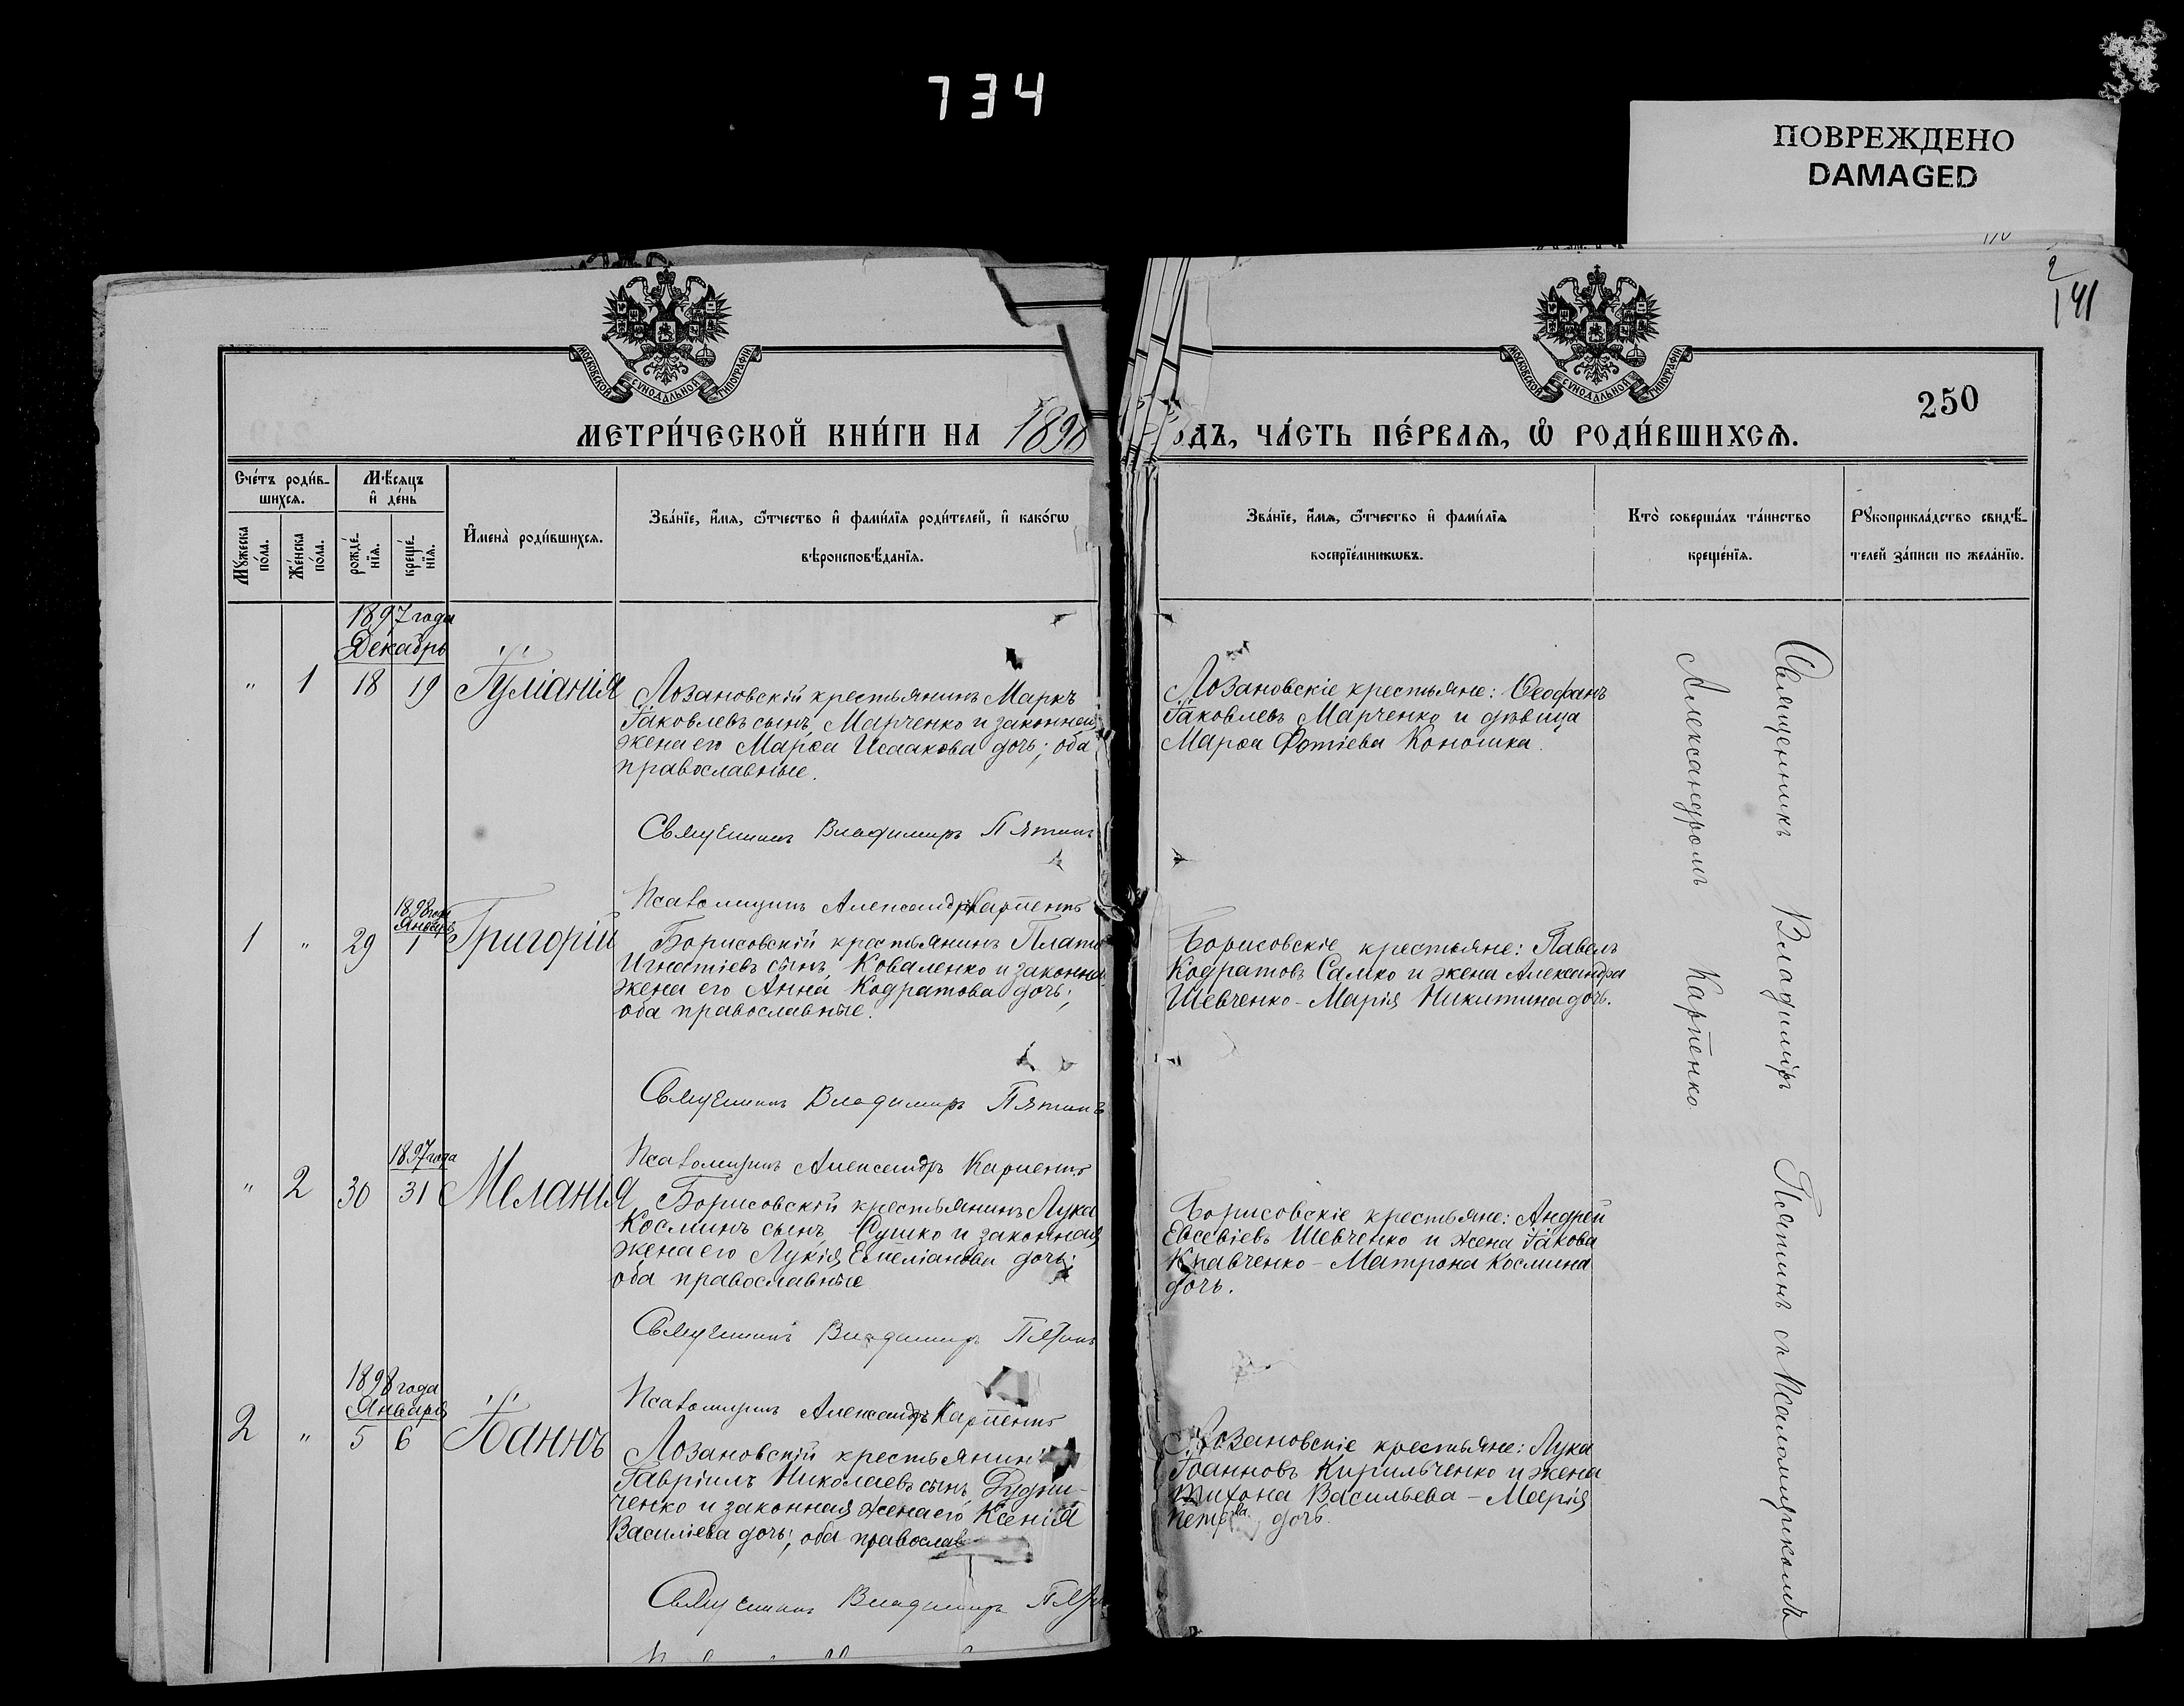 734
ПОВРЕЖДЕНО
DAMAGED
141
МОСКОВСКОЙ СѴНОДАЛЬНОЙ ТИПОГРАФІИ
МОСКОВСКОЙ СѴНОДАЛЬНОЙ ТИПОГРАФІИ
250
МЕТРИ́ЧЕСКОЙ КНИ́ГИ НА 1898
ДЪ, ЧА́СТЬ ПЕ́РВАѦ, Ѡ҆ РОДИ́ВШИХСѦ.
Сче́тъ роди́в-
шихсѧ.
Мꙋ́жеска
по́ла.
Же́нска
по́ла.
Мѣ́сѧцъ
и҆ де́нь
рожде́-
нїѧ.
креще́-
нїѧ.
И҆мена̀ роди́вшихсѧ.
Зва́нїе, и҆́мѧ, ѻ҆́тчество и҆ фами́лїѧ роди́телей, и҆ како́гѡ
вѣроисповѣ́данїѧ.
Зва́нїе, и҆́мѧ, ѻ҆́тчество и҆ фами́лїѧ
воспрїе́мникѡвъ.
Кто̀ соверша́лъ та́инство
креще́нїѧ.
Рꙋкоприкла́дство свидѣ́-
телей за́писи по жела́нїю.
1897 года
Декабрь
" 1 18 19 Іуліанія
Лозановскій крестьянинъ Маркъ
Іаковлевъ сынъ, Марченко и законная
жена его Марѳа Исаакова дочь; оба
православные.
Священникъ Владимиръ Пятинъ
Псаломщикъ Александръ Карпенко
Лозановскіе крестьяне: Ѳеофанъ
Іаковлевъ Марченко и дѣвица
Марѳа Фотіева Коношка.
1898 года
Январь
1 " 29 1 Григорій
Борисовскій крестьянинъ Плато
Игнатіевъ сынъ, Коваленко и законна
жена его Анна Кодратова дочь;
оба православные.
Священникъ Владимиръ Пятинъ
Псаломщикъ Александръ Карпенко
Борисовскіе крестьяне: Павелъ
Кодратовъ Салко и жена Александра
Шевченко - Марія Никитина дочь.
1897 года
" 2 30 31 Меланія
Борисовскій крестьянинъ Лука
Косминъ сынъ, Сушко и законная
жена его Лукія Емеліанова дочь;
оба православные
Священникъ Владимиръ Пятинъ
Псаломщикъ Александръ Карпенко
Борисовскіе крестьяне: Андрей
Евсевіевъ Шевченко и жена Іакова
Кравченко - Матрона Космина
дочь.
1898 года
Января
2 " 5 6 Іоаннъ
Лозановскій крестьянинъ
Гавріилъ Николаевъ сынъ Рудни-
ченко и законная жена его Ксенія
Василіева дочь; оба православ
Священникъ Владимиръ
Лозановскіе крестьяне: Лука
Іоанновъ Кирильченко и жена
Тихона Васильева - Марія
Петрова дочь.
Священникъ Владиміръ Пятинъ съ псаломщикомъ
Александромъ Карпенко